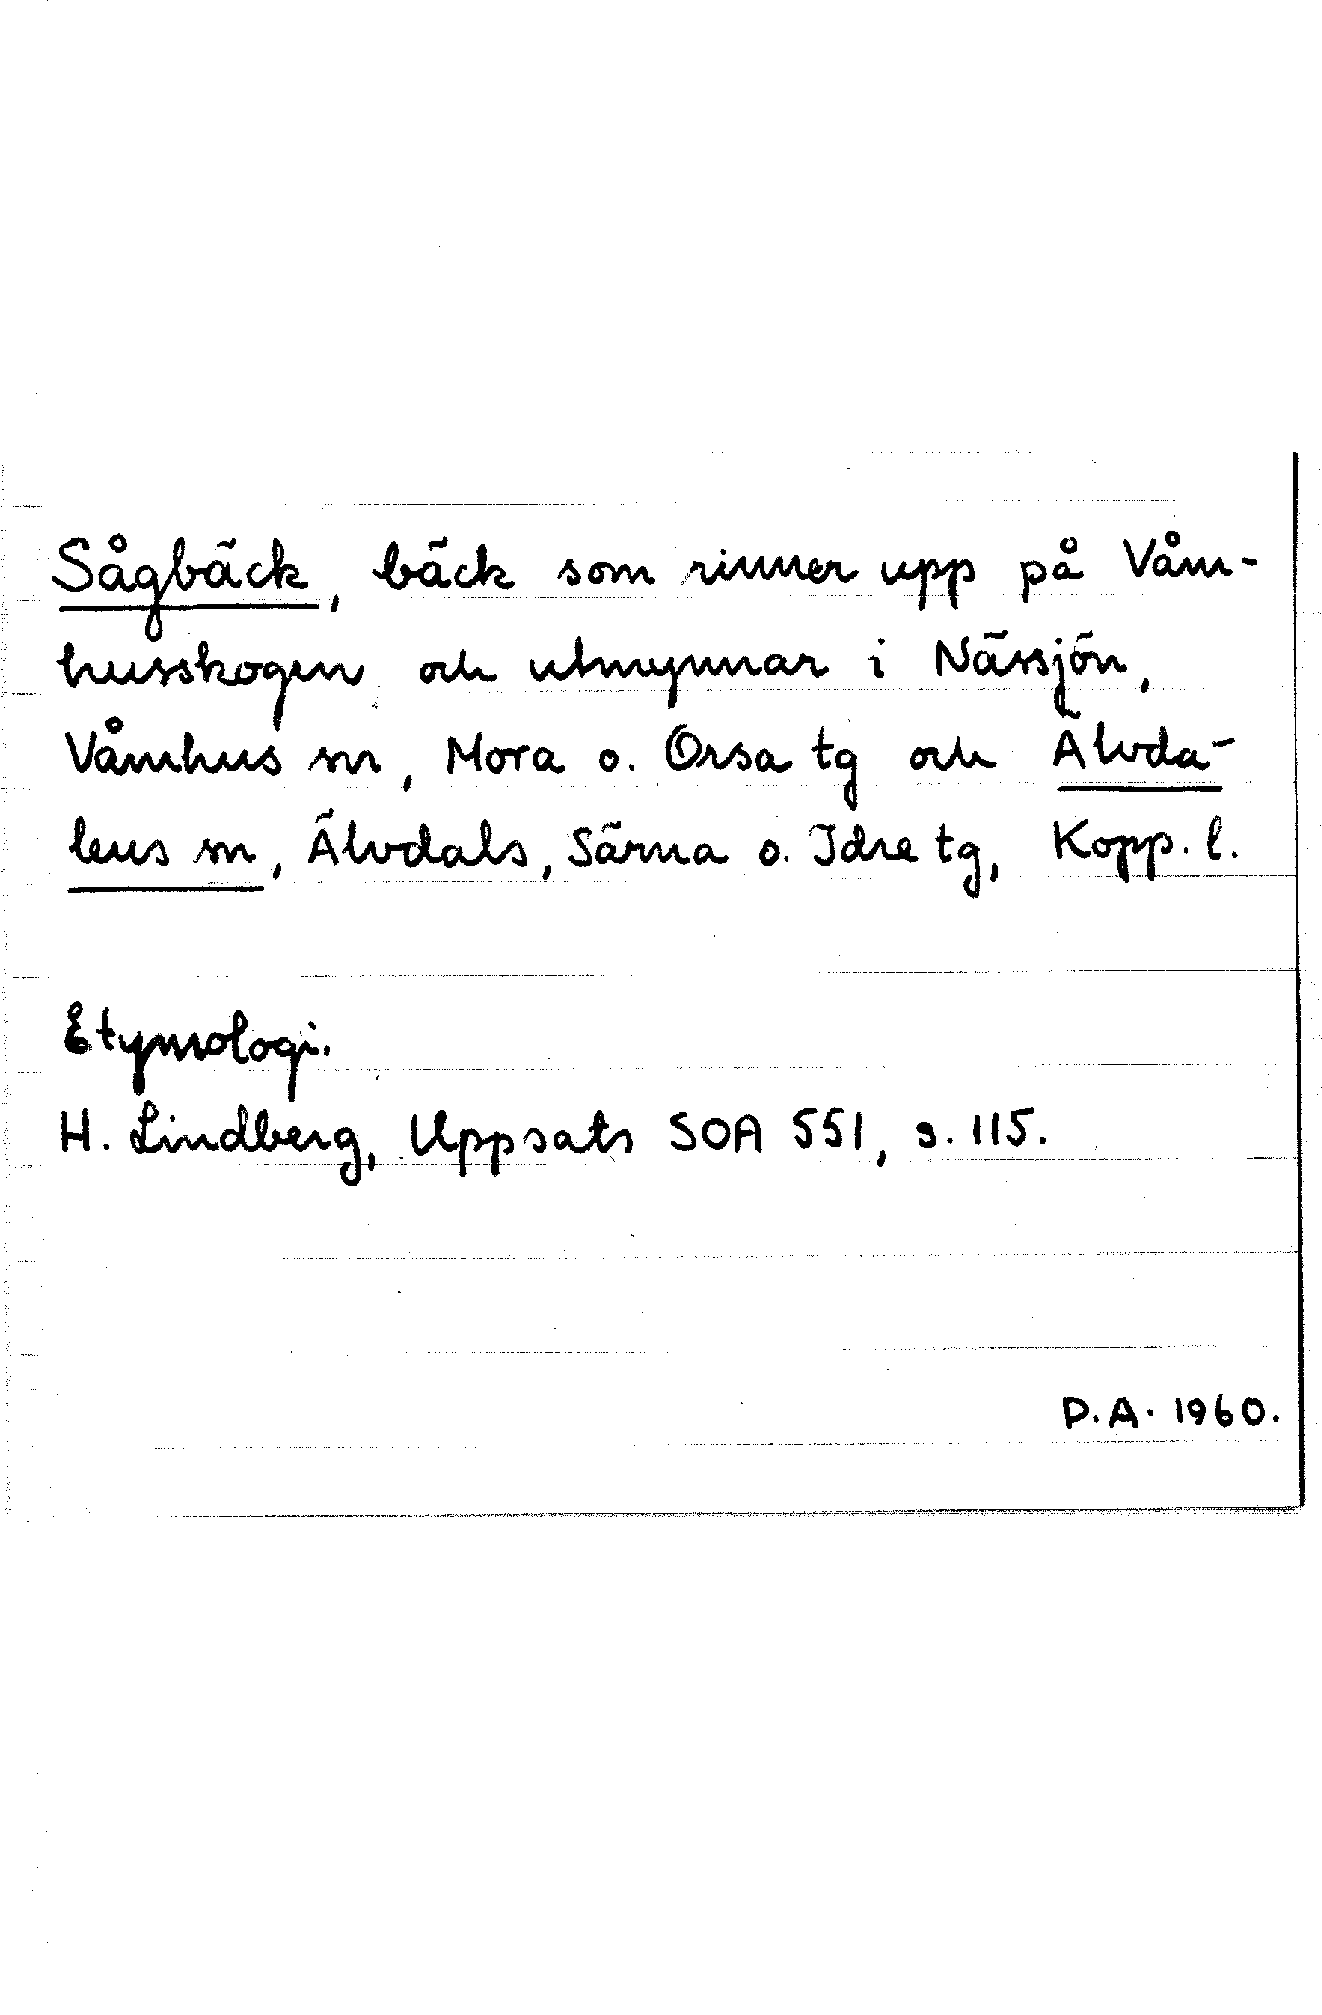 Sågbäck, bäck som rinner upp på Våm-
husskogen och utmynnar i Nässjön,
Våmhus sn, Mora o. Orsa tg och Älvda-
lens sn, Älvdals, Särna o. Idre tg, Kopp. l.
Etymologi.
H. Lindberg, Uppsats SOA 551, s. 115.
D.A. 1960.